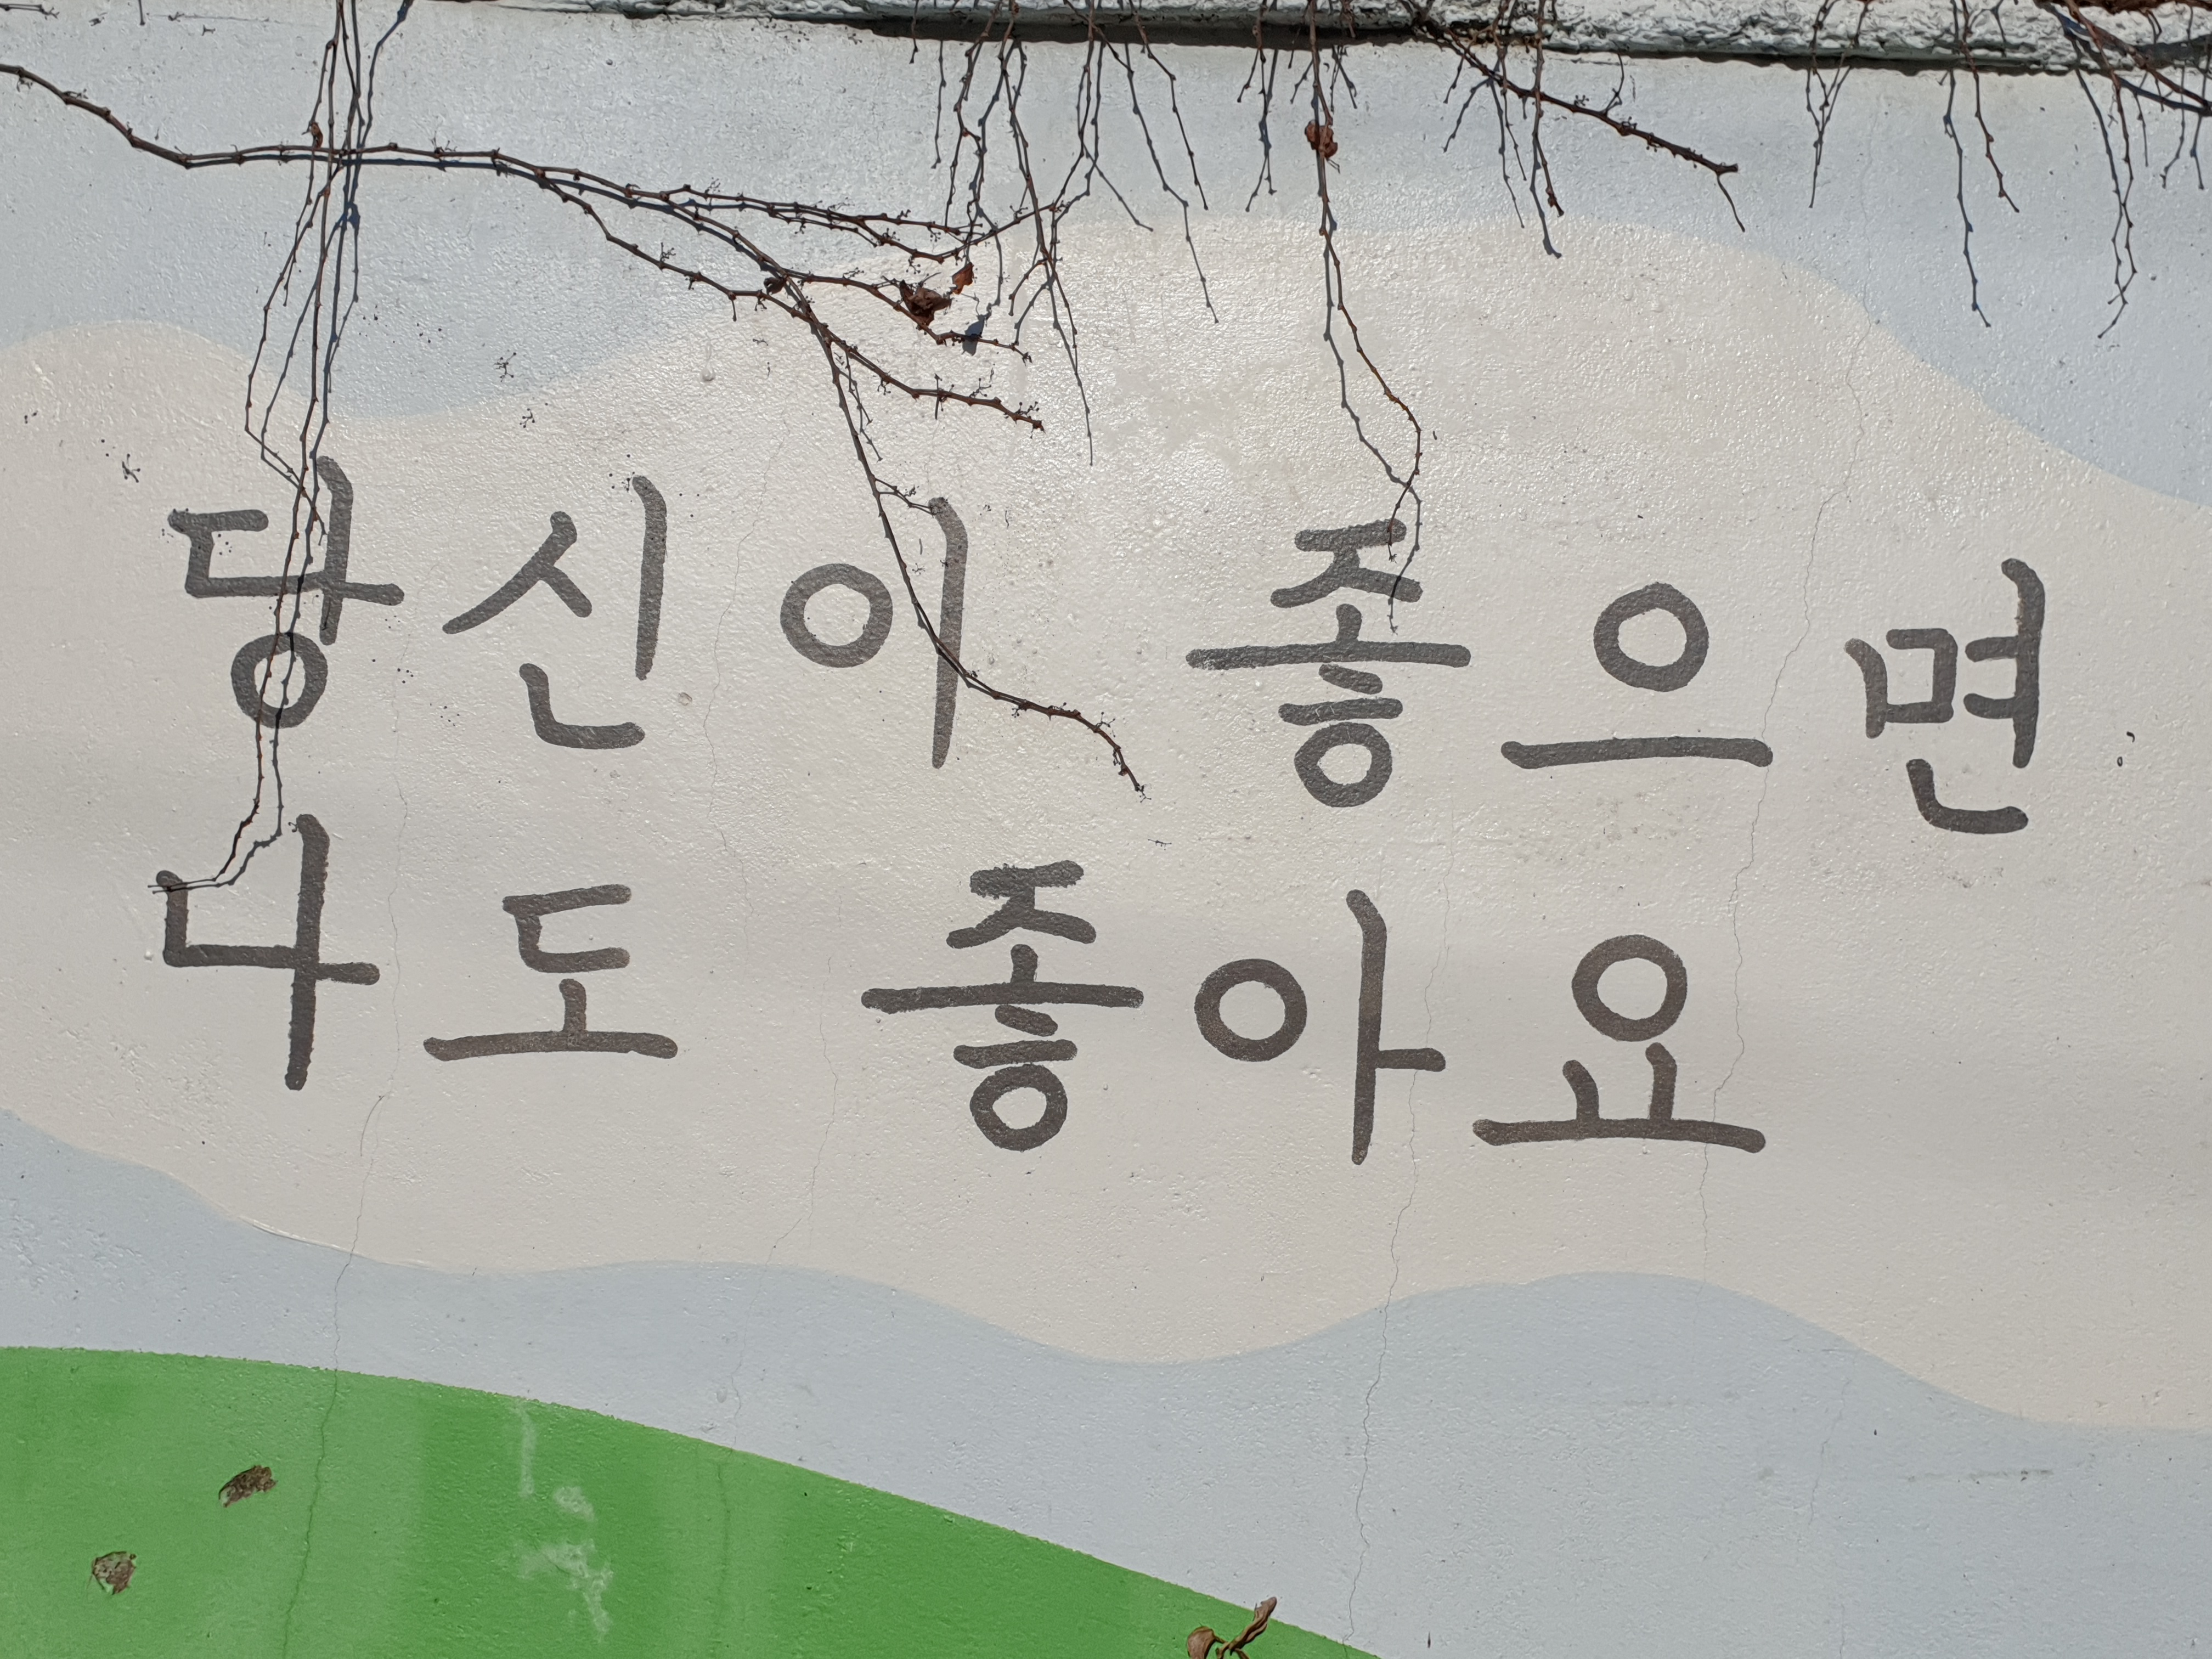 당신이 좋으면
나도 좋아요